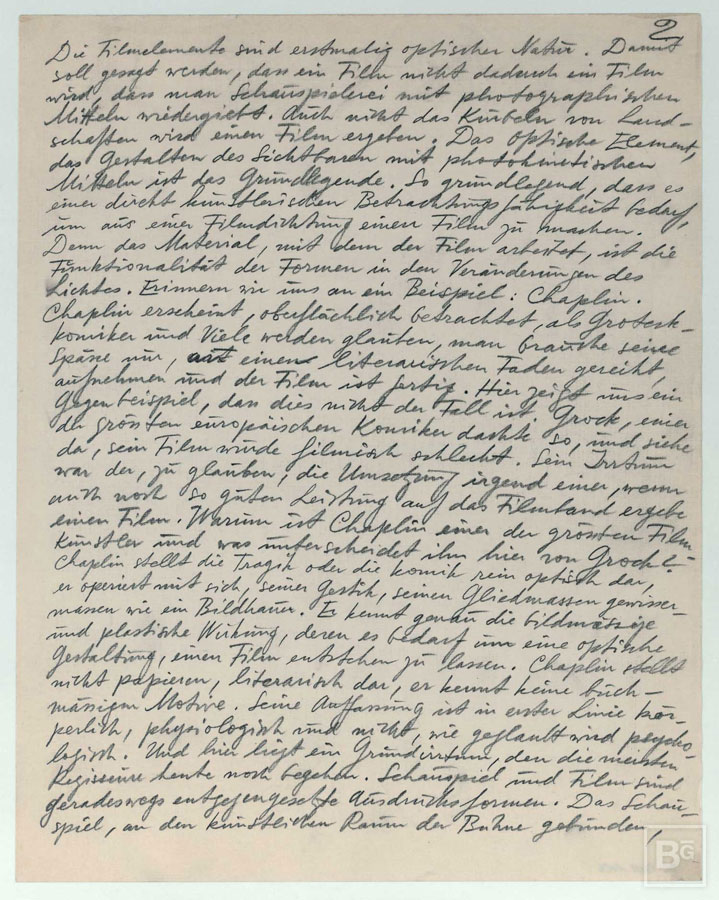 2
Die Filmelemente sind erstmalig optischer Natur. Damit
soll gesagt werden, dass ein Film nicht dadurch ein Film
wird, dass man Schauspielerei mit photographischen
Mitteln wiedergiebt. Auch nicht das Kurbeln von Land-
schaften wird einen Film ergeben. Das optische Element,
das Gestalten des Sichtbaren mit photokinetischen
Mitteln ist das Grundlegende. So grundlegend, dass es
einer direkt künstlerischen Betrachtungsfähigkeit bedarf,
um aus einer Filmdichtung einen Film zu machen.
Denn das Material, mit dem der Film arbeitet, ist die
Funktionalität der Formen in den Veränderungen des
Lichtes. Erinnern wir uns an ein Beispiel: Chaplin.
Chaplin erscheint, oberflächlich betrachtet, als Grotesk-
komiker und Viele werden glauben, man brauche seine
Spässe nur, auf einen literarischen Faden gereiht,
aufnehmen und der Film ist fertig. Hier zeigt uns ein
Gegenbeispiel, dass dies nicht der Fall ist. Grock, einer
der grössten europäischen Komiker dachte so, und siehe
da, sein Film wurde filmisch schlecht. Sein Irrtum
war der, zu glauben, die Umsetzung irgend einer, wenn
auch noch so guten Leistung auf das Filmband ergebe
einen Film. Warum ist Chaplin einer der grössten Film
künstler und was unterscheidet ihn hier von Grock? -
Chaplin stellt die Tragik oder die Komik rein optisch dar,
er operiert mit sich, seiner Gestik, seinen Gliedmassen gewisser-
massen wie ein Bildhauer. Er kennt genau die bildmässige
und plastische Wirkung, deren es bedarf um eine optische
Gestaltung, einen Film entstehen zu lassen. Chaplin stellt
nicht papieren, literarisch dar, er kennt keine buch-
mässigen Motive. Seine Auffassung ist in erster Linie kör-
perlich, physiologisch und nicht, wie geglaubt wird psycho-
logisch. Und hier liegt ein Grundirrtum, den die meisten
Regisseure heute noch begehen. Schauspiel und Film sind
geradeswegs entgegengesetzte Ausdrucksformen. Das Schau-
spiel, an den künstlichen Raum der Bühne gebunden,
BG